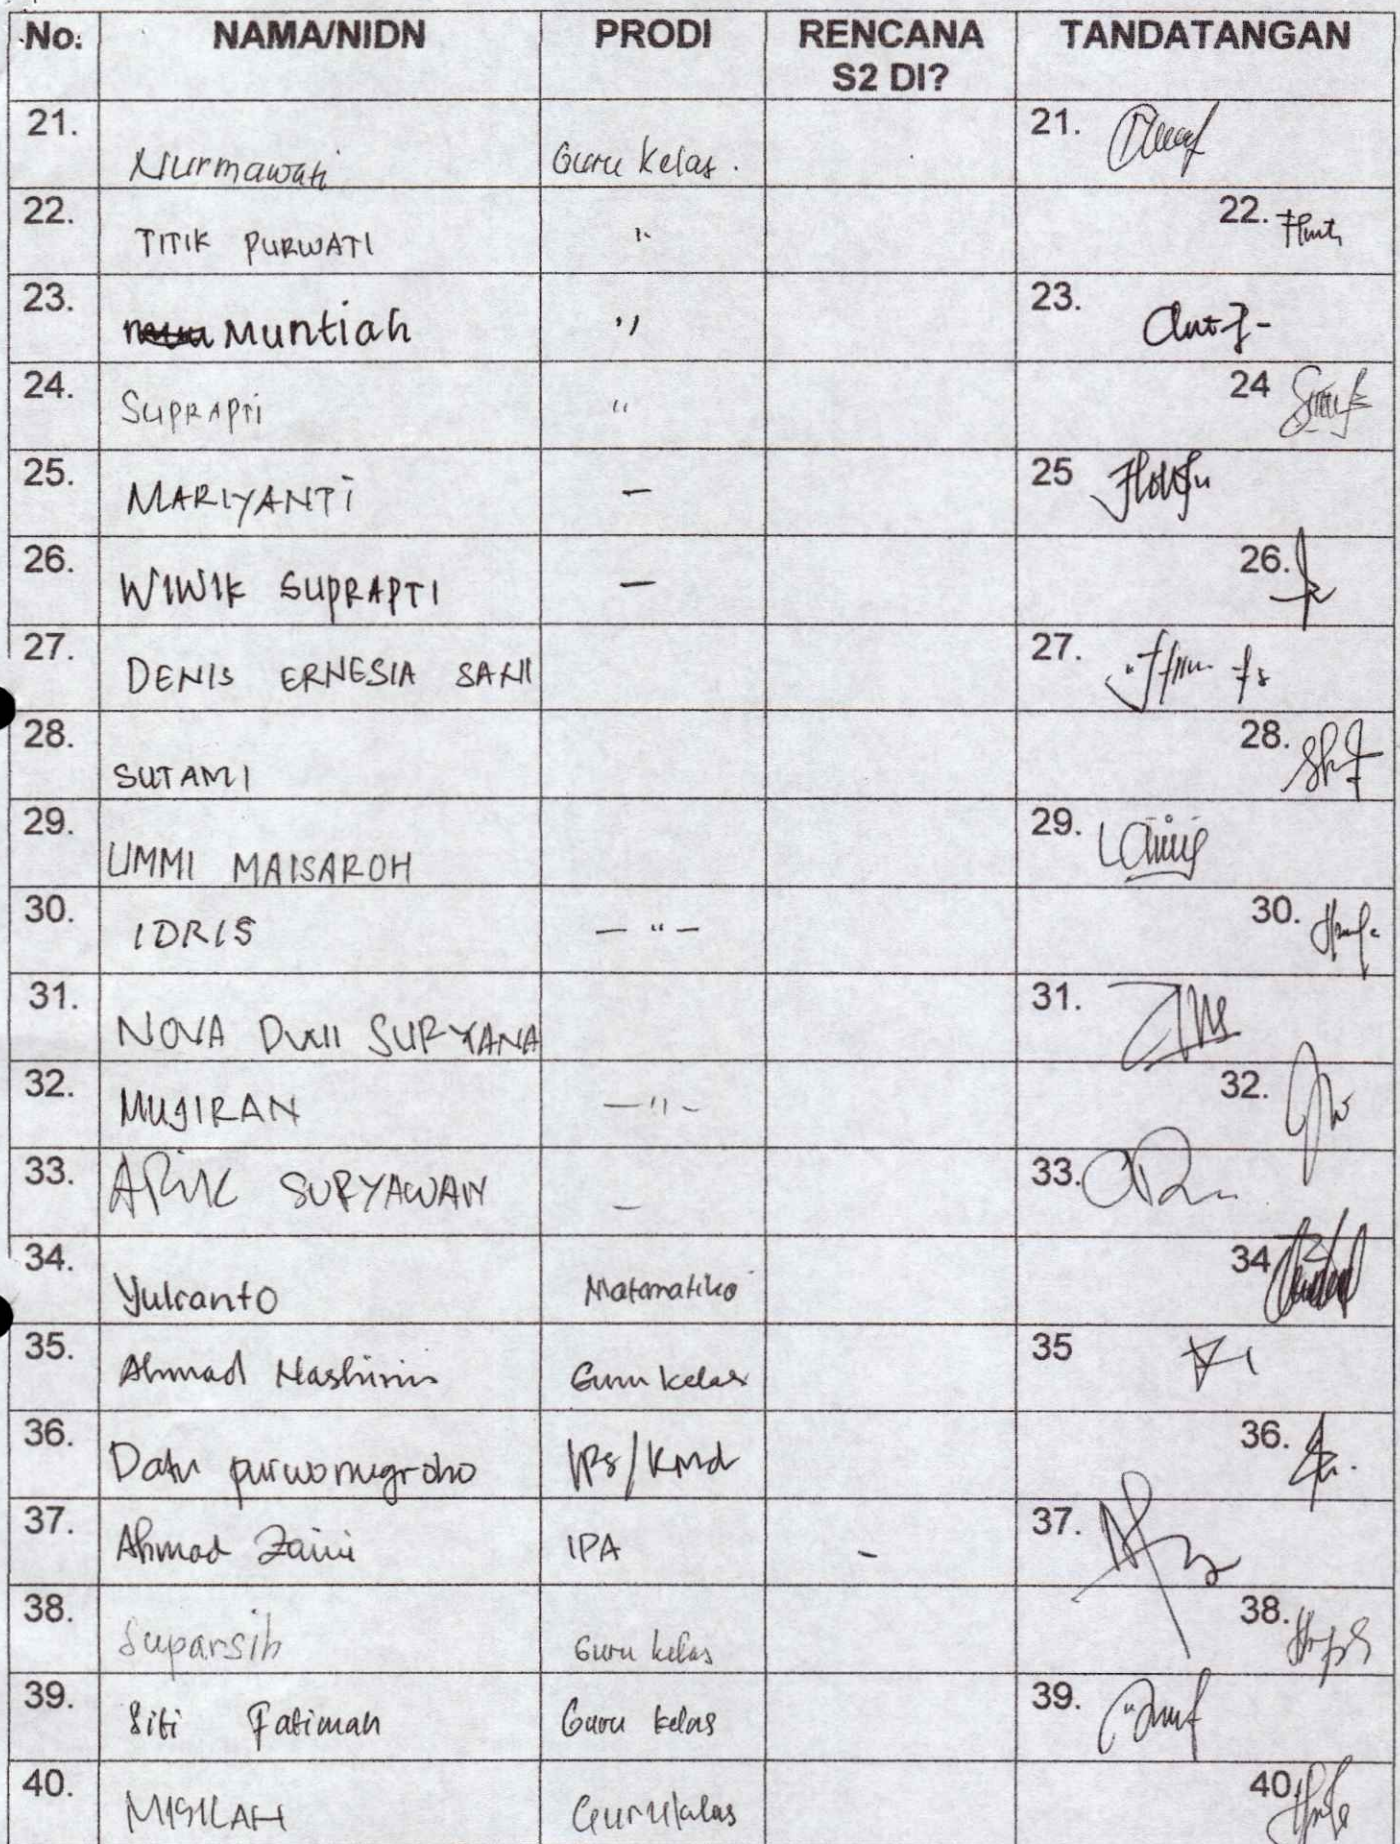 No. NAMA/NIDN PRODI RENCANA S2 DI? TANDATANGAN
21. Nurmawati Guru Kelas. 21.
22. TITIK PURWATI " 22.
23. Muntiah " 23.
24. SUPRAPTI " 24
25. MARIYANTI — 25
26. WIWIK SUPRAPTI — 26.
27. DENIS ERNESIA SARI 27.
28. SUTAMI 28.
29. UMMI MAISAROH 29.
30. IDRIS — " — 30.
31. NOVA DWII SURYANA 31.
32. MUJIRAN — " — 32.
33. ARIK SURYAWAN — 33.
34. Yulianto Matematika 34
35. Ahmad Guru kelas 35
36. Datu purwonugroho IPS/Kmd 36.
37. Ahmad Zaini IPA - 37.
38. Suparsih Guru kelas 38.
39. Siti Fatimah Guru kelas 39.
40. MISILAH Guru kelas 40